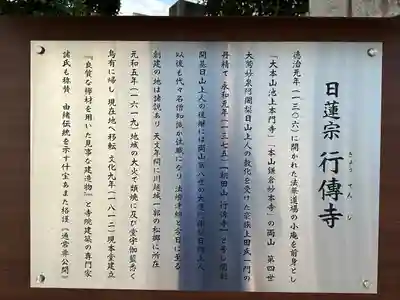 日蓮宗 行傳寺
ぎょう でん じ
徳治元年(一三〇六)に開かれた法華道場の小庵を前身とし
「大本山池上本門寺」「本山鎌倉妙本寺」の両山 第四世
大鷲妙泉阿闍梨日山上人の教化を受けた豪族上田氏一門の
再精で 永和元年(一三七五)「朝田山 行傳寺」と号し開創
開基日山上人の後継には両山第八世の大運阿闍梨日調上人
以後も代々名僧知識が住職になり 法燈連綿と今日に至る
創建の地は諸説あり 天文年間に川越城一郭の松郷に所在
元和五年(一六一九)地域の大火で類焼に及び堂宇伽藍悉く
烏有に帰し 現在地へ移転 文化九年(一八一二)現本堂建立
『良質な欅材を用いた見事な建造物』と寺院建築の専門家
諸氏も称賛 由緒伝統を示す什宝あまた格護《通常非公開》